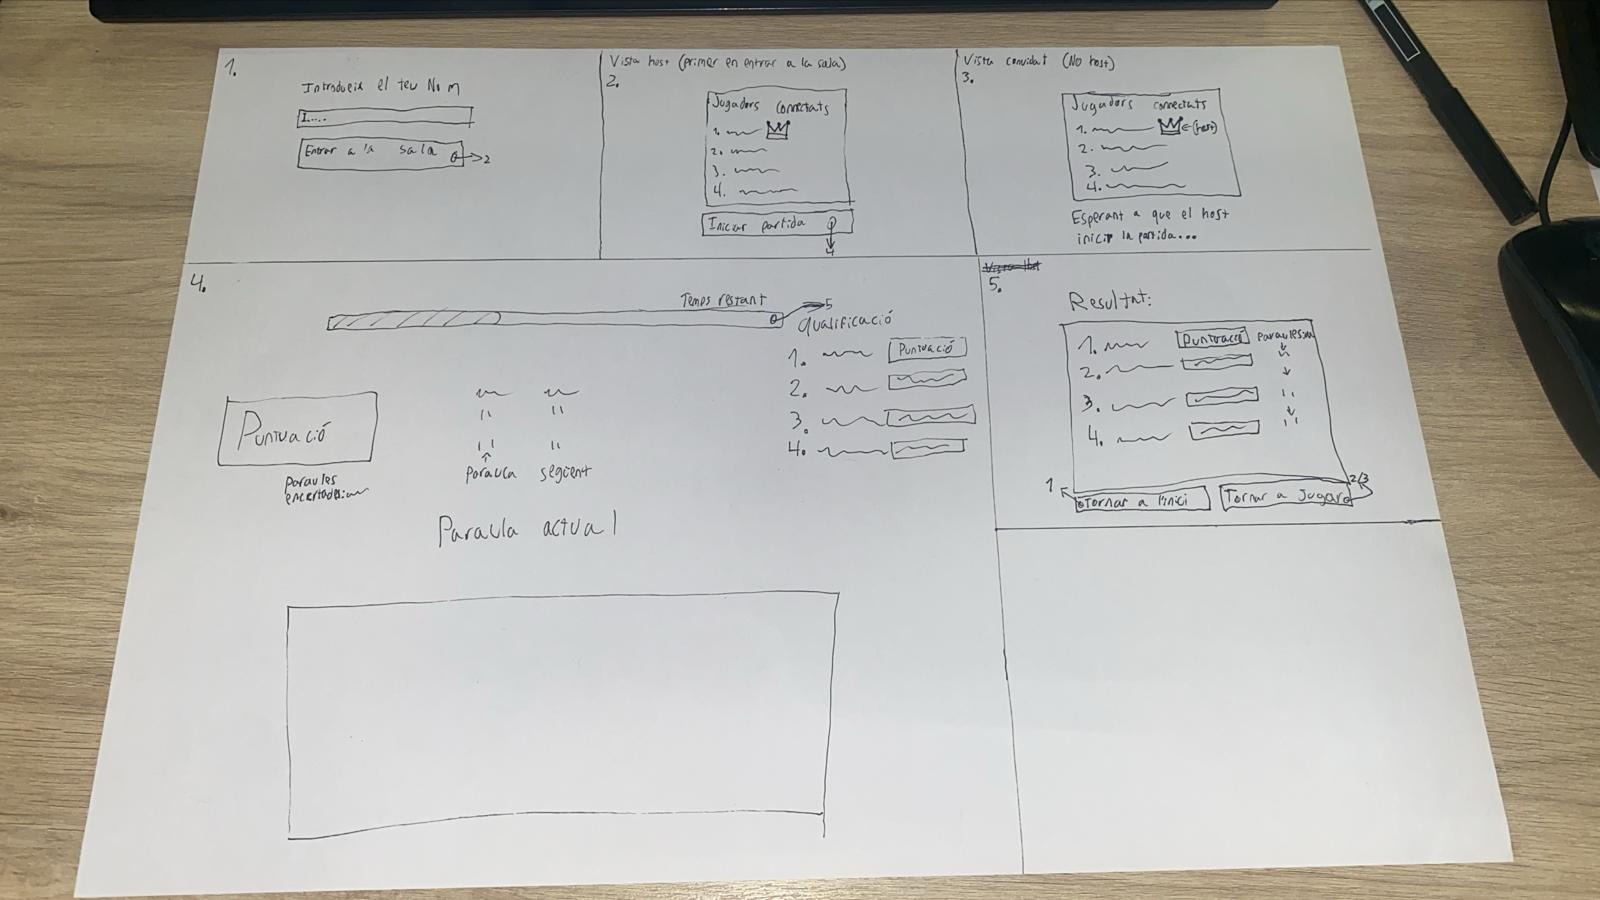 1.
Introdueix el teu Nom
I.....
Entrar a la sala →2
Vista host (primer en entrar a la sala)
2.
Jugadors connectats
1.
2.
3.
4.
Iniciar partida
4
Vista convidat (No host)
3.
Jugadors connectats
1. ←(host)
2.
3.
4.
Esperant a que el host
inici la partida...
4.
Temps restant
5
Qualificació
1. Puntuació
2.
3.
4.
Puntuació
paraules
encertades:
" "
" "
paraula següent
Paraula actual
5.
Resultat:
1. Puntuació paraules
2.
3. "
4. "
1 Tornar a l'inici
Tornar a Jugar 2/3